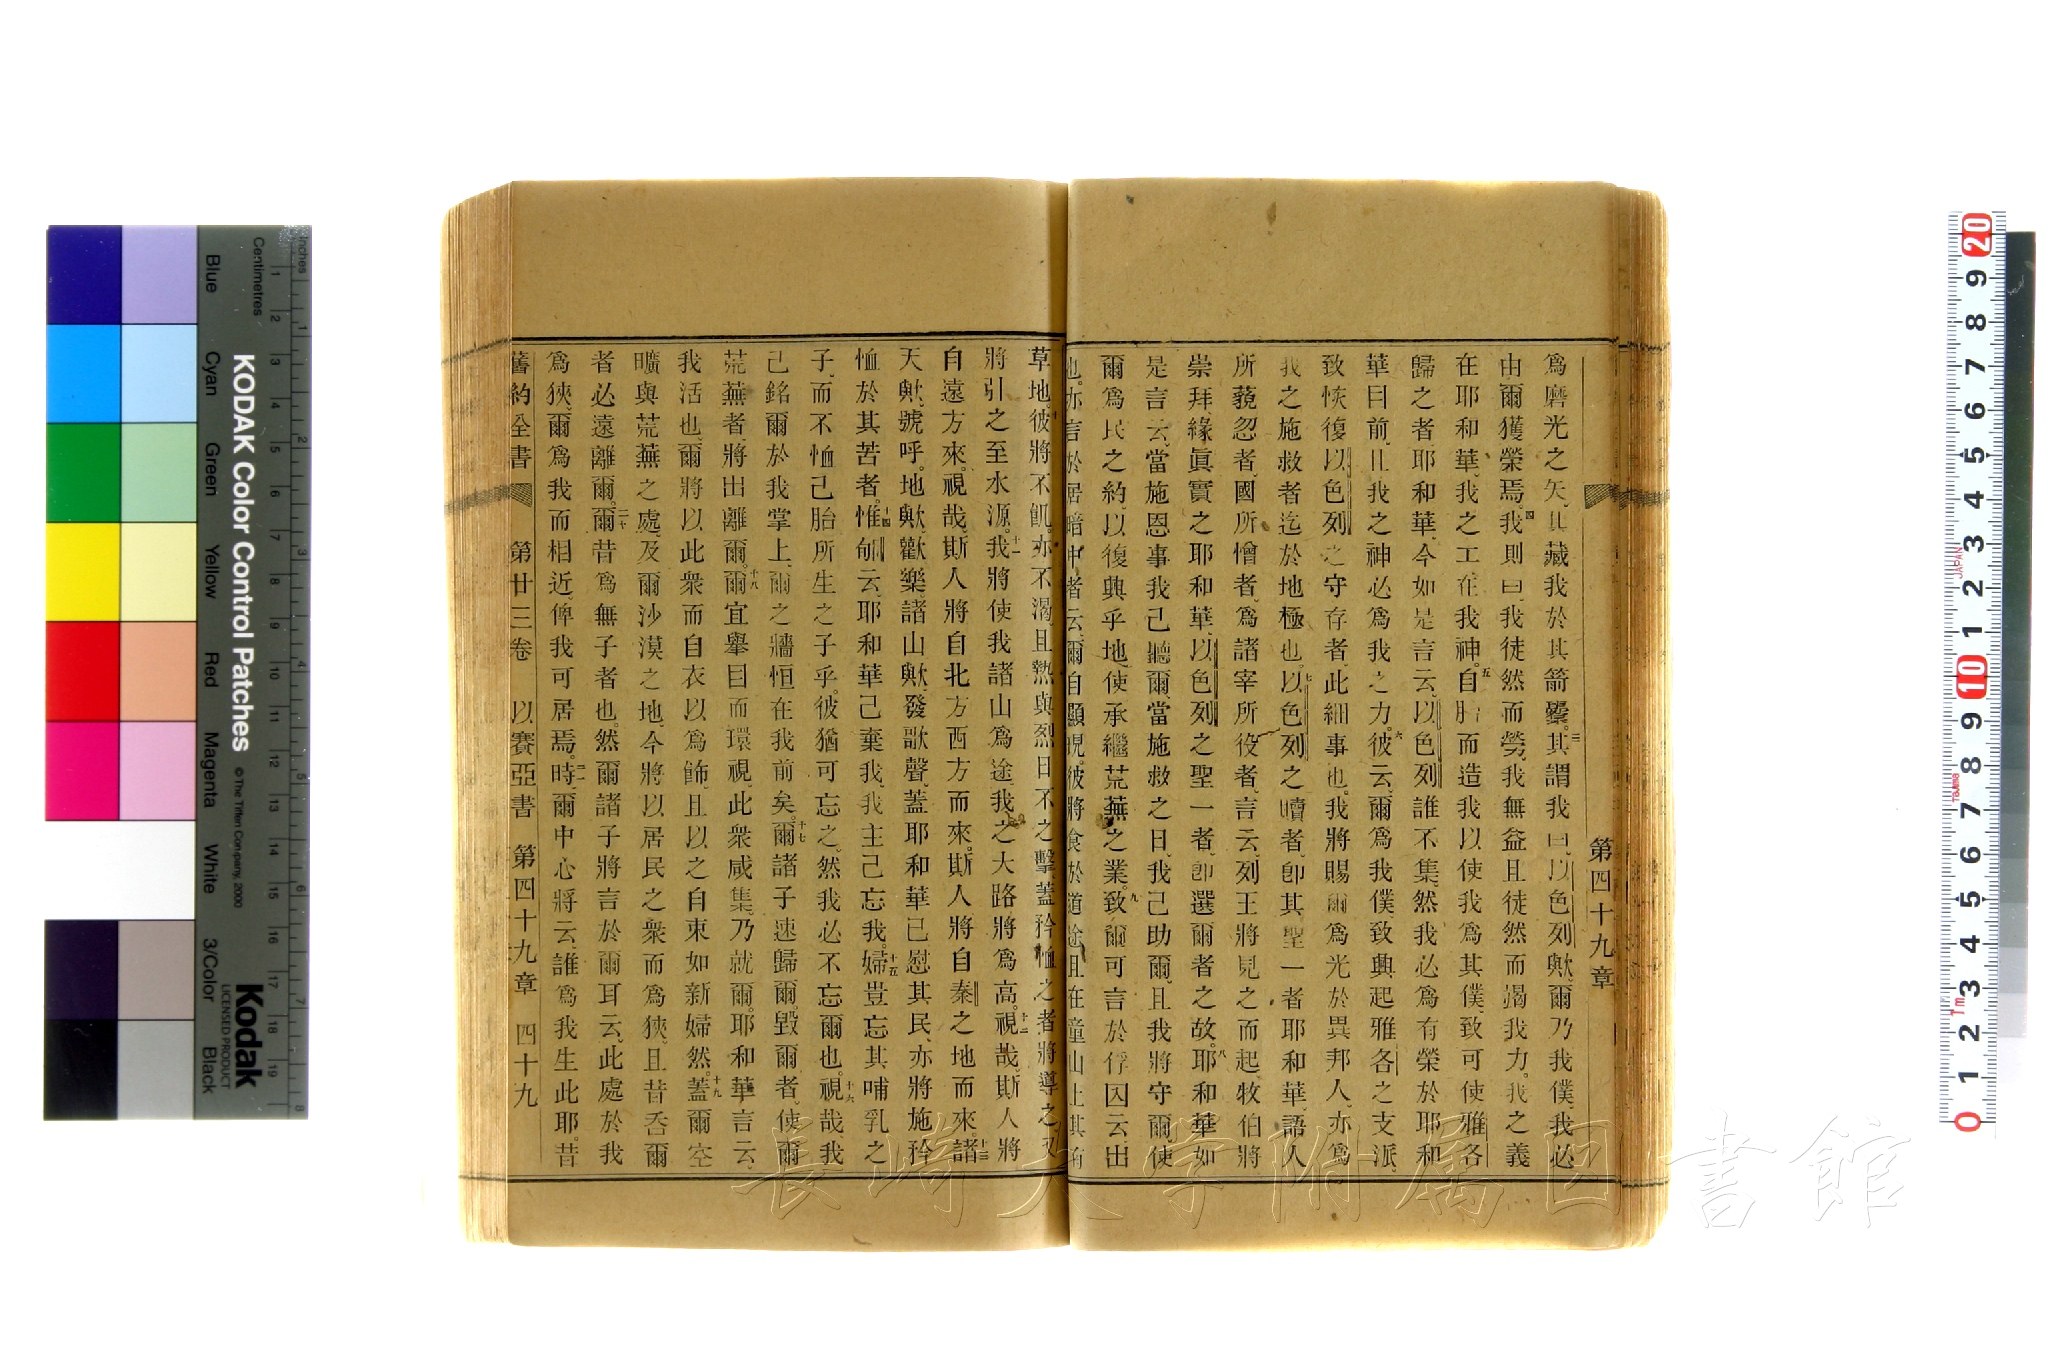 第四十九章
爲磨光之矢、且藏我於其箭櫜。三其謂我曰、以色列歟、爾乃我僕、我必
由爾獲榮焉。四我則曰、我徒然而勞、我無益且徒然而竭我力。我之義
在耶和華、我之工在我神。五自胎而造我以使我爲其僕、致可使雅各
歸之者耶和華、今如是言云、以色列誰不集、然我必爲有榮於耶和
華目前、且我之神必爲我之力。六彼云、爾爲我僕、致興起雅各之支派、
致恢復以色列之守存者、此細事也。我將賜爾爲光於異邦人、亦爲
我之施救者迄於地極也。七以色列之贖者、卽其聖一者耶和華、語人
所藐忽者、國所憎者、爲諸宰所役者、言云、列王將見之而起、牧伯將
崇拜、緣眞實之耶和華、以色列之聖一者、卽選爾者之故。八耶和華如
是言云、當施恩事我己聽爾、當施救之日、我己助爾、且我將守爾、使
爾爲民之約、以復興乎地、使承繼荒蕪之業。九致爾可言於俘囚云、出
也。亦言於居暗中者云、爾自顯現。彼將食於道途、且在童山上其有
草地。十彼將不飢。亦不渴、且熱與烈日不之擊、蓋矜恤之者將導之、又
將引之至水源。十一我將使我諸山爲途、我之大路將爲高。十二視哉、斯人將
自遠方來。視哉、斯人將自北方西方而來。斯人將自秦之地而來。十三諸
天歟、號呼。地歟、歡樂、諸山歟、發歌聲、蓋耶和華已慰其民、亦將施矜
恤於其苦者。十四惟郇云、耶和華己棄我、我主己忘我。十五婦豈忘其哺乳之
子、而不恤己胎所生之子乎。彼猶可忘之、然我必不忘爾也。十六視哉、我
己銘爾於我掌上、爾之牆恒在我前矣。十七爾諸子速歸爾、毀爾者、使爾
荒蕪者、將出離爾。十八爾宜擧目而環視、此衆咸集、乃就爾。耶和華言云、
我活也、爾將以此衆而自衣以爲飾、且以之自束如新婦然。十九蓋爾空
曠與荒蕪之處、及爾沙漠之地、今將以居民之衆而爲狹、且昔呑爾
者必遠離爾。二十爾昔爲無子者也。然爾諸子將言於爾耳云、此處於我
爲狹、爾爲我而相近、俾我可居焉。二一時、爾中心將云、誰爲我生此耶。昔
舊約全書 第廿三卷 以賽亞書 第四十九章 四十九
長崎大学附属図書館
KODAK Color Control Patches
© The Tiffen Company, 2000
Kodak
LICENSED PRODUCT
Inches
Centimetres
Blue
Cyan
Green
Yellow
Red
Magenta
White
3/Color
Black
JAPAN